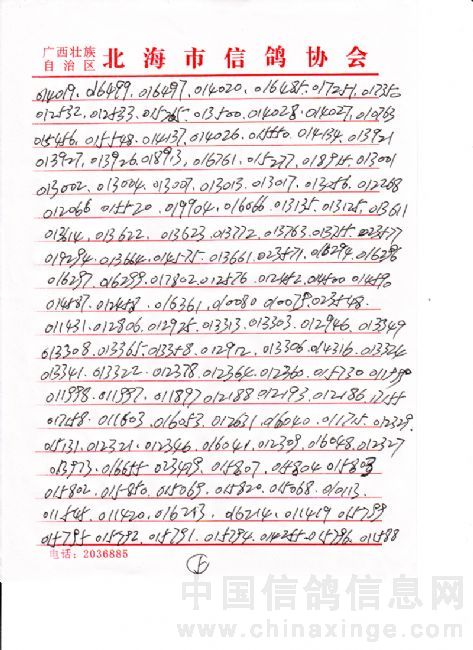 广西壮族
自治区 北海市信鸽协会
014019. 016499. 016497. 014020. 016485. 017251. 017350
012532. 012533. 015265. 013500. 014028. 014027. 010763
015456. 015548. 014137. 014026. 015550. 014134. 013921
013927. 013926. 018913. 016761. 015277. 018925. 013001
013002. 013004. 013007. 013013. 013017. 013256. 012268
012066 015520. 019904. 016066 013135. 013125. 013611
013614. 013622. 013623. 013772. 013763. 013755. 023577
019294. 013664. 014575. 013661. 023571. 016294. 016296
016297. 016299. 017802. 012576. 012452. 014500 014590
014587. 012458. 016361. 010080 010079. 023548.
011431. 012806. 012925. 013313. 013303. 012946. 013349
013308. 013365. 013358. 012912. 013306. 014316. 013324
013341. 013322. 012378. 012364. 012360. 015730
011998. 011997. 011897. 012188 012193. 012186.
011603. 016053. 012631. 016040. 011715. 012329
05131. 012321. 012346. 016041. 012309. 016048. 012327
013973. 016655. 023479. 015807. 015804. 015803
015802. 015850. 015069. 015820. 015068. 010113.
011545. 011420. 016213. 016214. 011419 015799
015795 015792. 015791. 015794. 014255. 015796. 011588
电话：2036885
中国信鸽信息网
www.chinaxinge.com